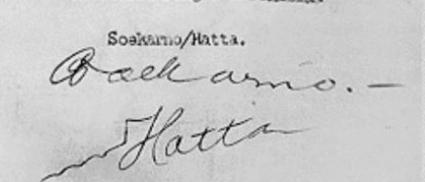 Soekarno/Hatta.
Soekarno.—
Hatta